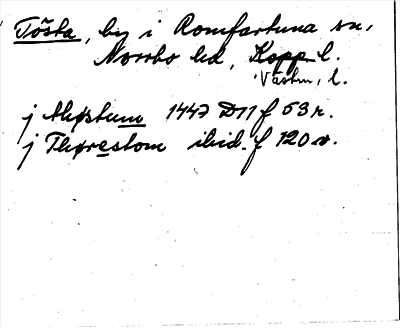 Tösta, by i Romfartuna sn,
Norrbo hd, Kopp. l.
Västm. l.
j thøstum 1447 D11 f 53 r.
j Thørestom ibid. f 120 v.